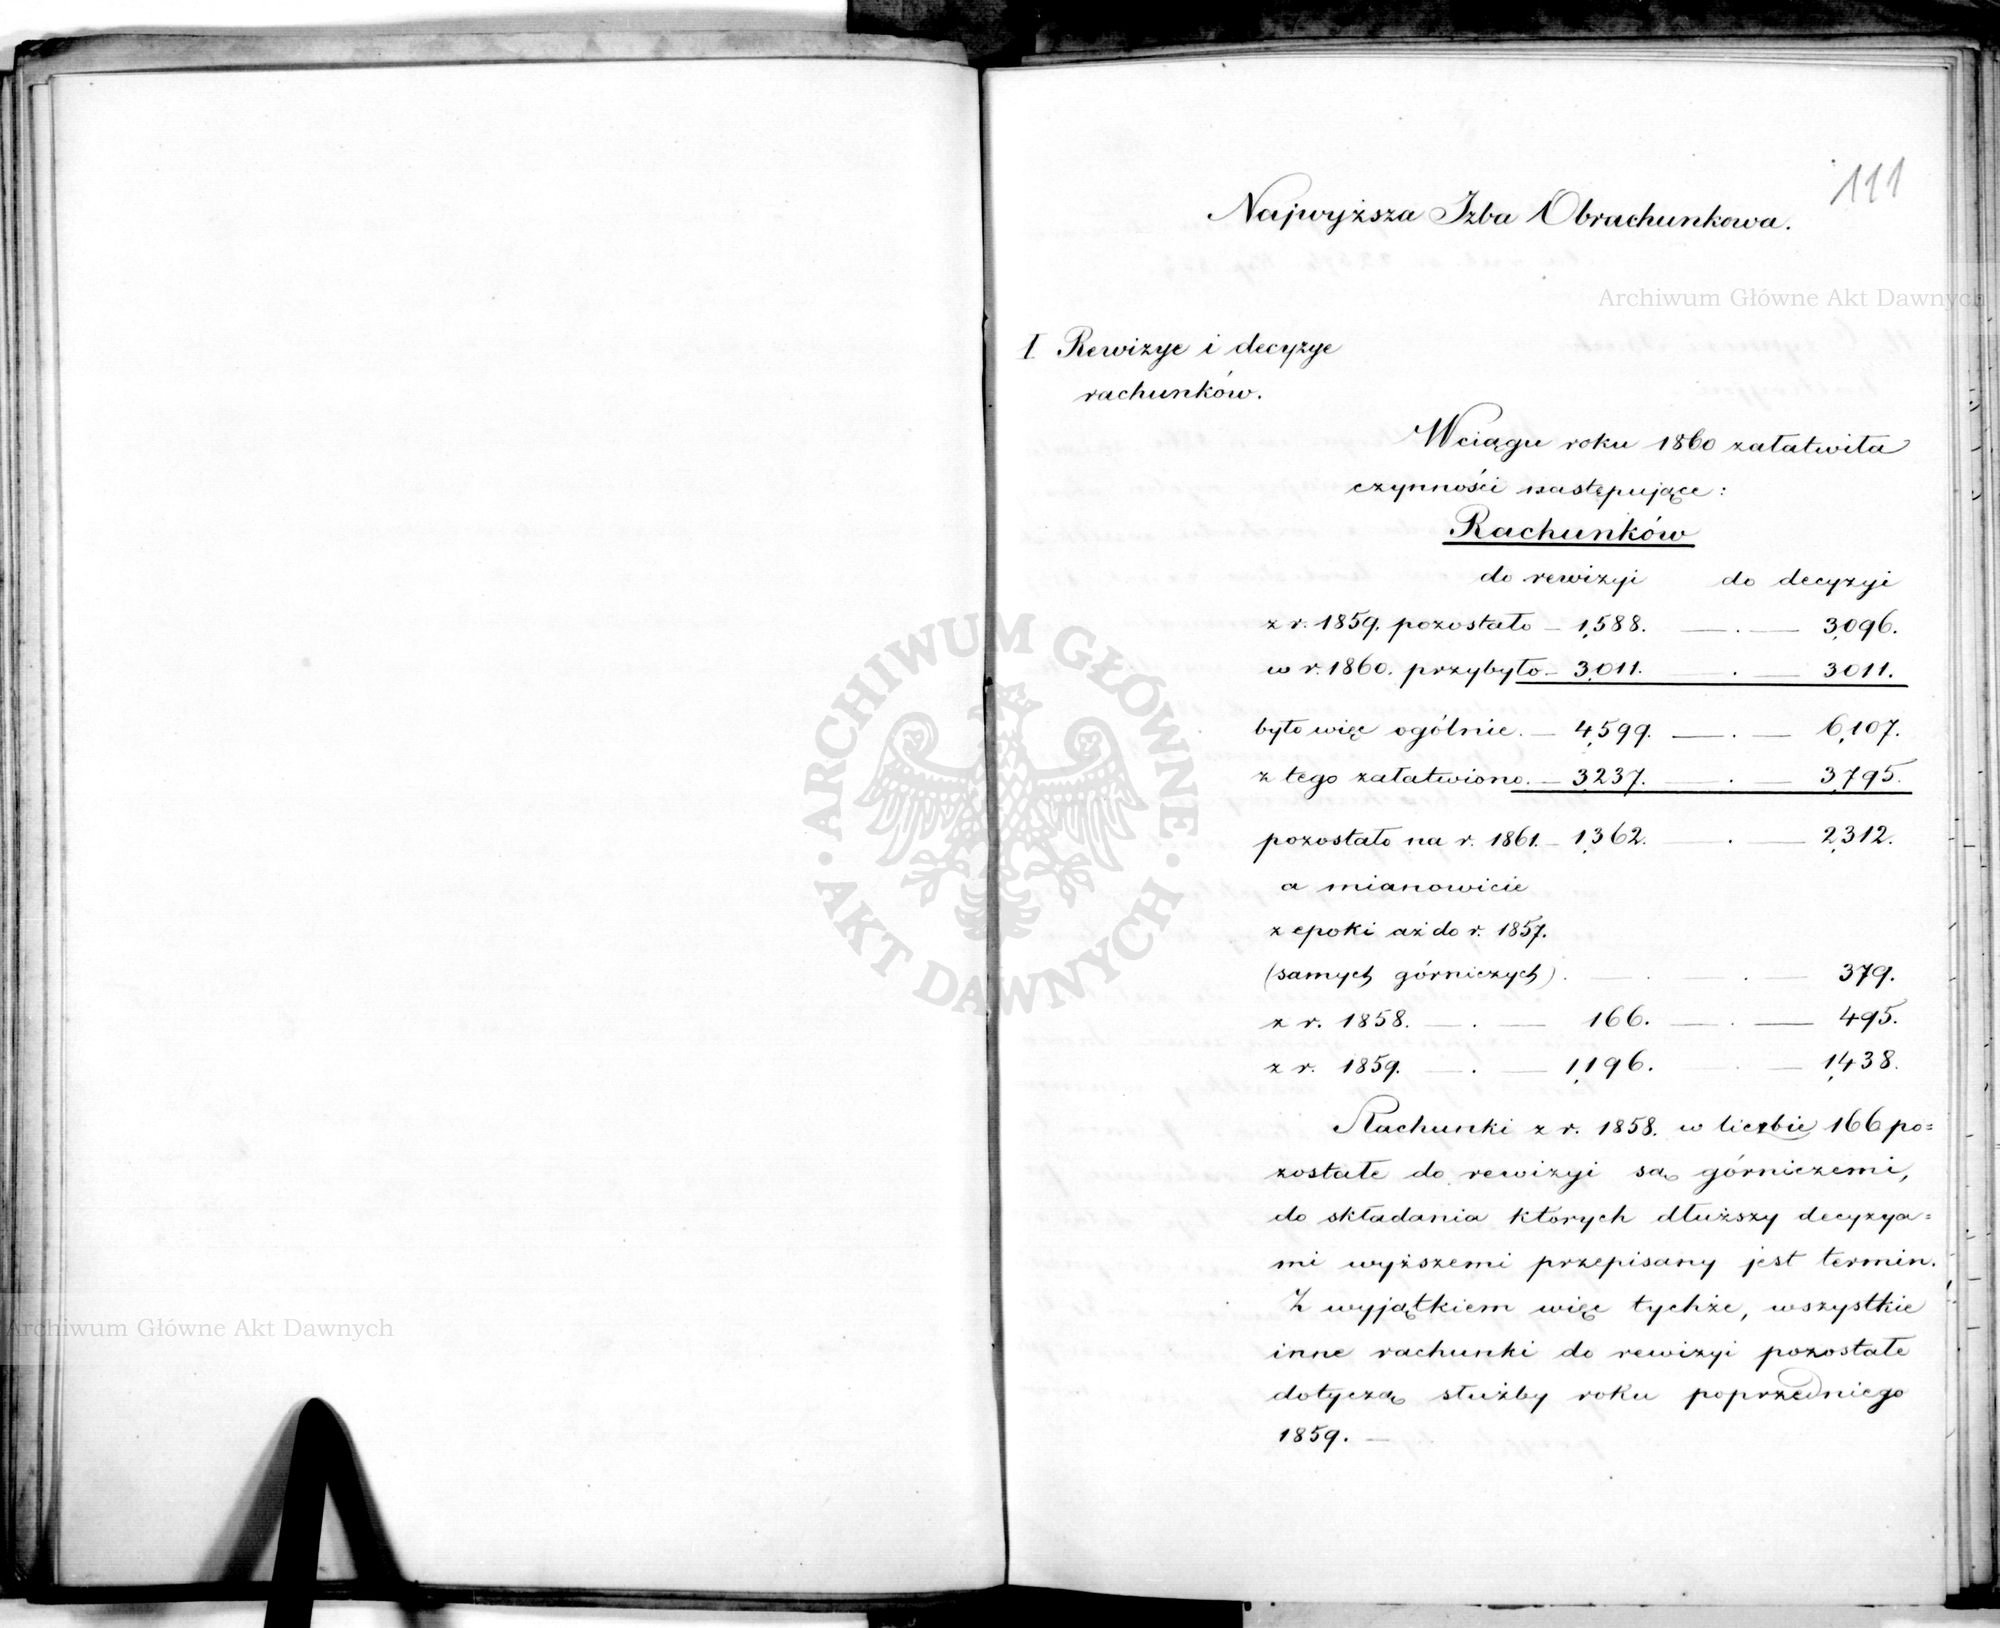 111
Najwyższa Izba Obrachunkowa.
Archiwum Główne Akt Dawnych
I Rewizye i decyzye
rachunków.
Wciągu roku 1860 załatwiła
czynności następujące:
Rachunków
do rewizyi do decyzyi
z r. 1859. pozostało — 1,588. — . — 3,096.
w r. 1860. przybyło — 3,011. — . — 3011.
było więc ogólnie. — 4,599. — . — 6,107.
z tego załatwiono. — 3,237. — . — 3,795.
pozostało na r. 1861. — 1,362. — . — 2,312.
a mianowicie
z epoki aż do r. 1857.
(samych górniczych). — . — 379.
z r. 1858. — . — 166. — . — 495.
z r. 1859. — . — 1,196. — . — 1,438.
Rachunki z r. 1858. w liczbie 166 po=
zostałe do rewizyi są górniczemi,
do składania których dłuższy decyzya=
mi wyższemi przepisany jest termin.
Z wyjątkiem więc tychże, wszystkie
inne rachunki do rewizyi pozostałe
dotyczą służby roku poprzedniego
1859. —
ARCHIWUM GŁÓWNE
AKT DAWNYCH
Archiwum Główne Akt Dawnych